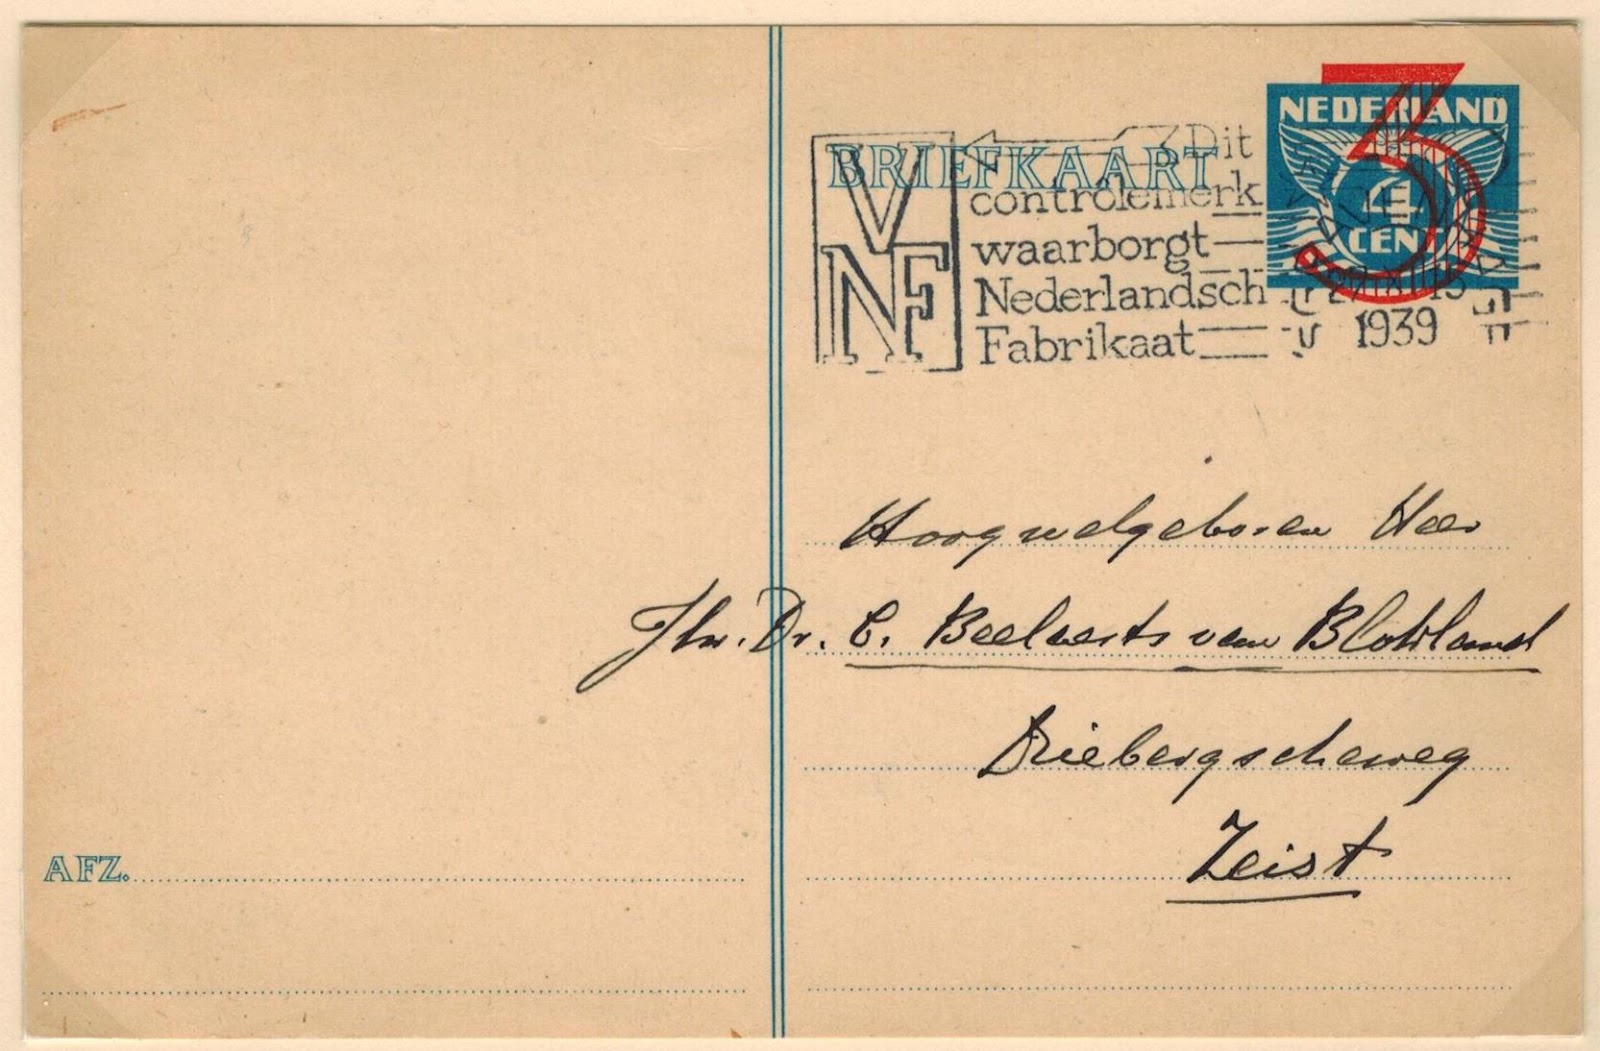 BRIEFKAART
NEDERLAND
3
4
CENT
VNF
Dit
contrôlemerk
waarborgt
Nederlandsch
Fabrikaat
1939
Hoogwelgeboren Heer
Jhr. Dr. C. Beelaerts van Blokland
Driebergscheweg
Zeist
AFZ.